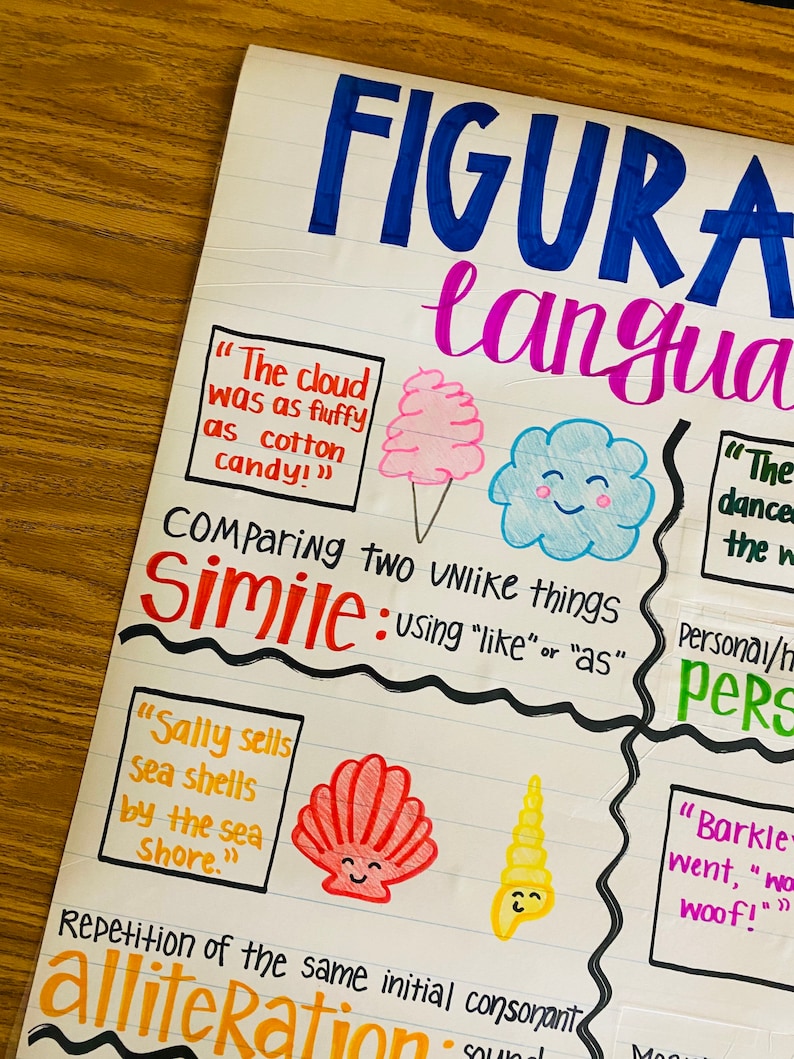 FIGURA
Langua
"The cloud
was as fluffy
as cotton
candy!"
Comparing two unlike things
Simile: using "like" or "as"
"The
danced
the w
Personal/h
Pers
"Sally sells
sea shells
by the sea
shore."
Repetition of the same initial consonant
alliteration: sound
"Barkle
went, "wo
woof!""